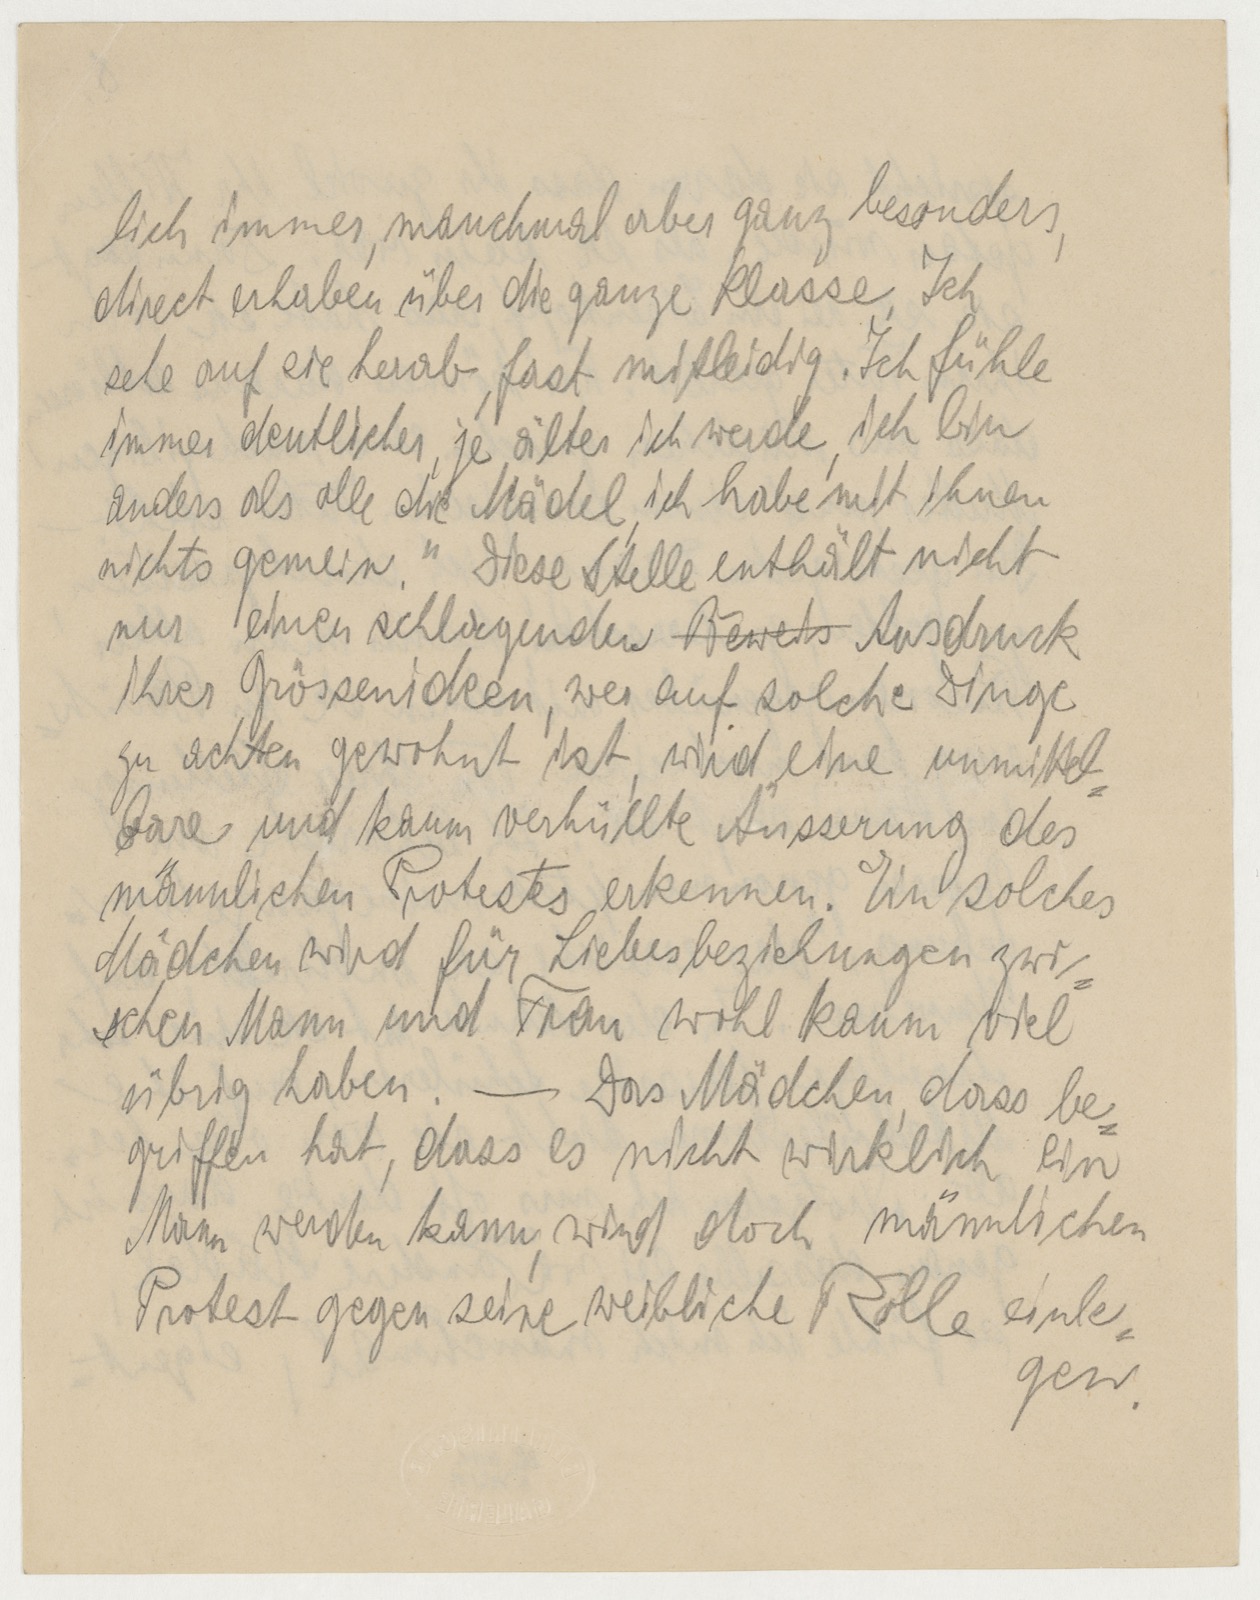 lich immer, manchmal aber ganz besonders,
direct erhaben über die ganze Klasse. Ich
sehe auf sie herab, fast mitleidig. Ich fühle
immer deutlicher, je älter ich werde, ich bin
anders als alle die Mädel, ich habe mit ihnen
nichts gemein." Diese Stelle enthält nicht
nur einen schlagenden Beweis Ausdruck
ihrer Grössenideen, wer auf solche Dinge
zu achten gewohnt ist, wird eine unmittel=
bare und kaum verhüllte Äusserung des
männlichen Protestes erkennen. Ein solches
Mädchen wird für Liebesbeziehungen zwi=
schen Mann und Frau wohl kaum viel
übrig haben. — Das Mädchen, dass be=
griffen hat, dass es nicht wirklich ein
Mann werden kann, wird doch männlichen
Protest gegen seine weibliche Rolle einle=
gen.